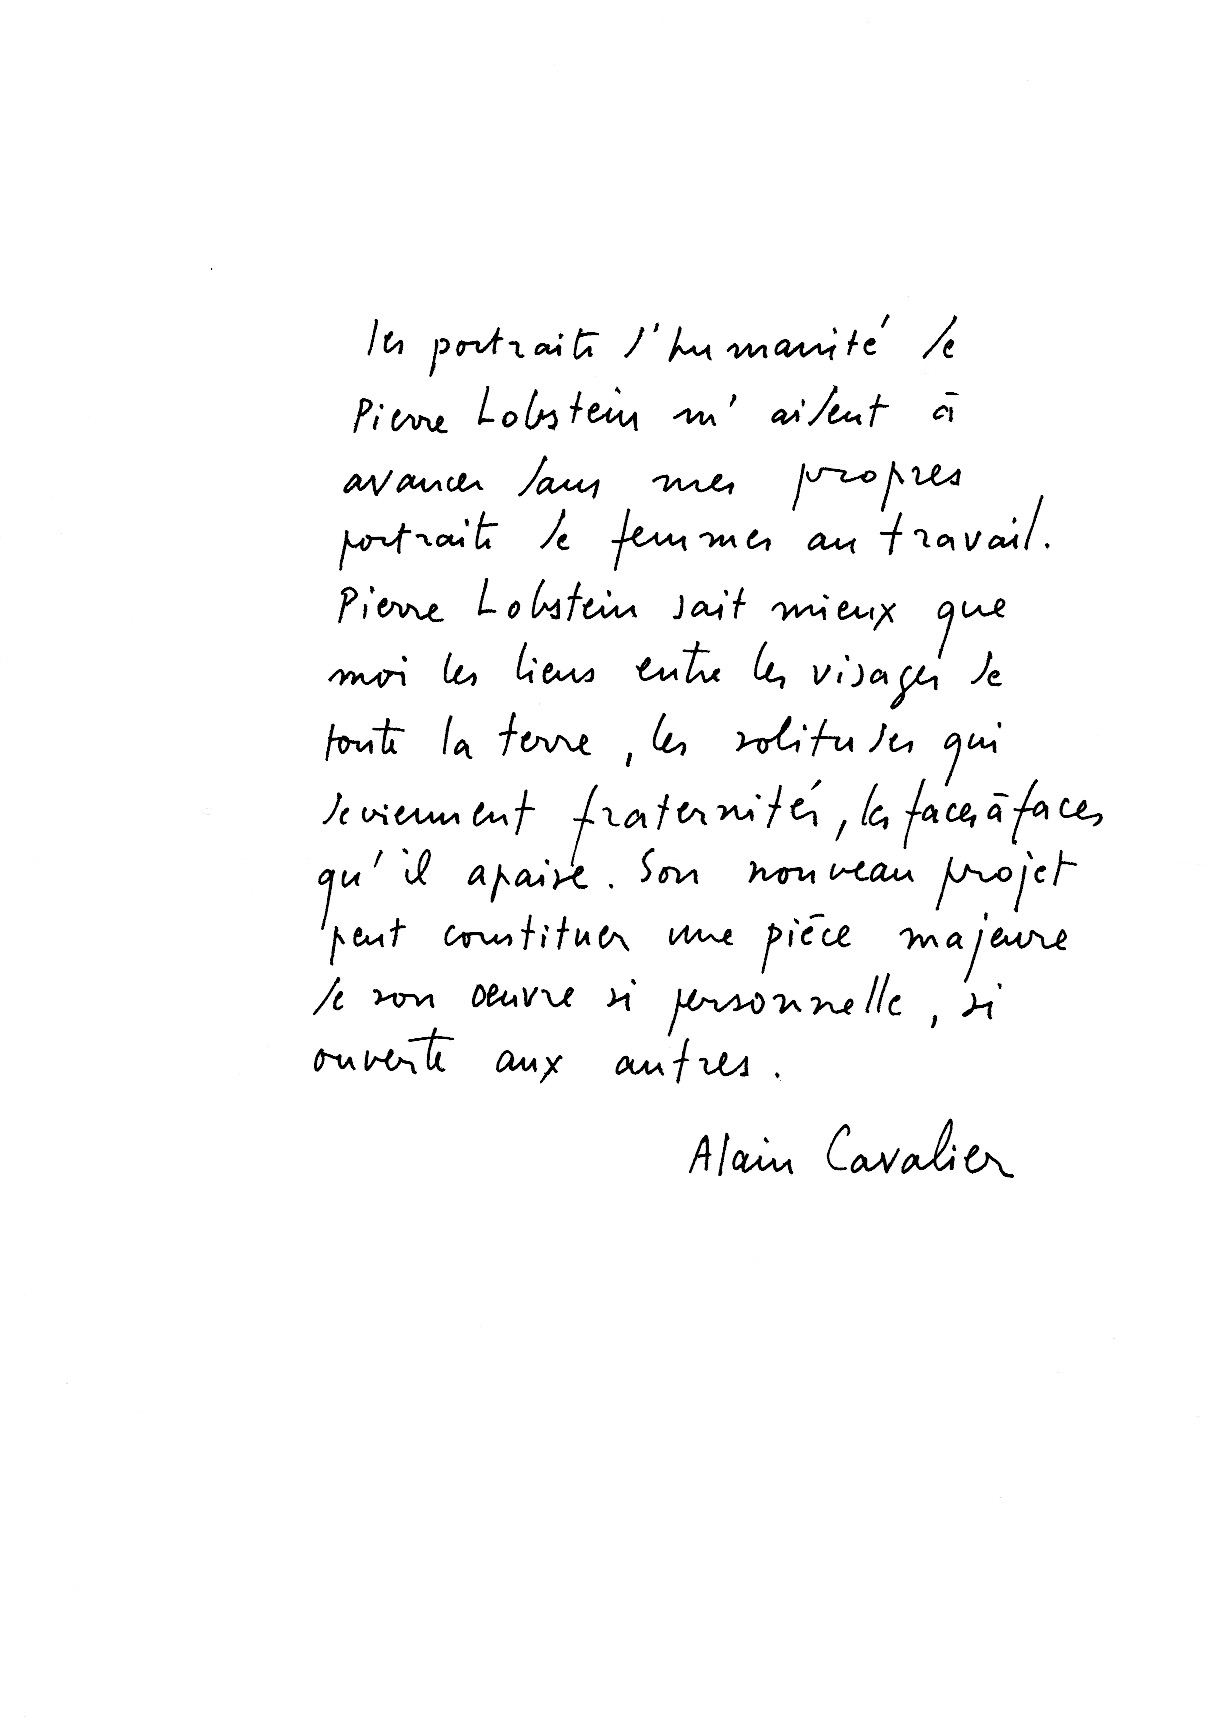 les portraits d'humanité de
Pierre Lobstein m'aident à
avancer dans mes propres
portraits de femmes au travail.
Pierre Lobstein sait mieux que
moi les liens entre les visages de
toute la terre, les solitudes qui
deviennent fraternités, les faces à faces
qu'il apaise. Son nouveau projet
peut constituer une pièce majeure
de son oeuvre si personnelle, si
ouverte aux autres.
Alain Cavalier